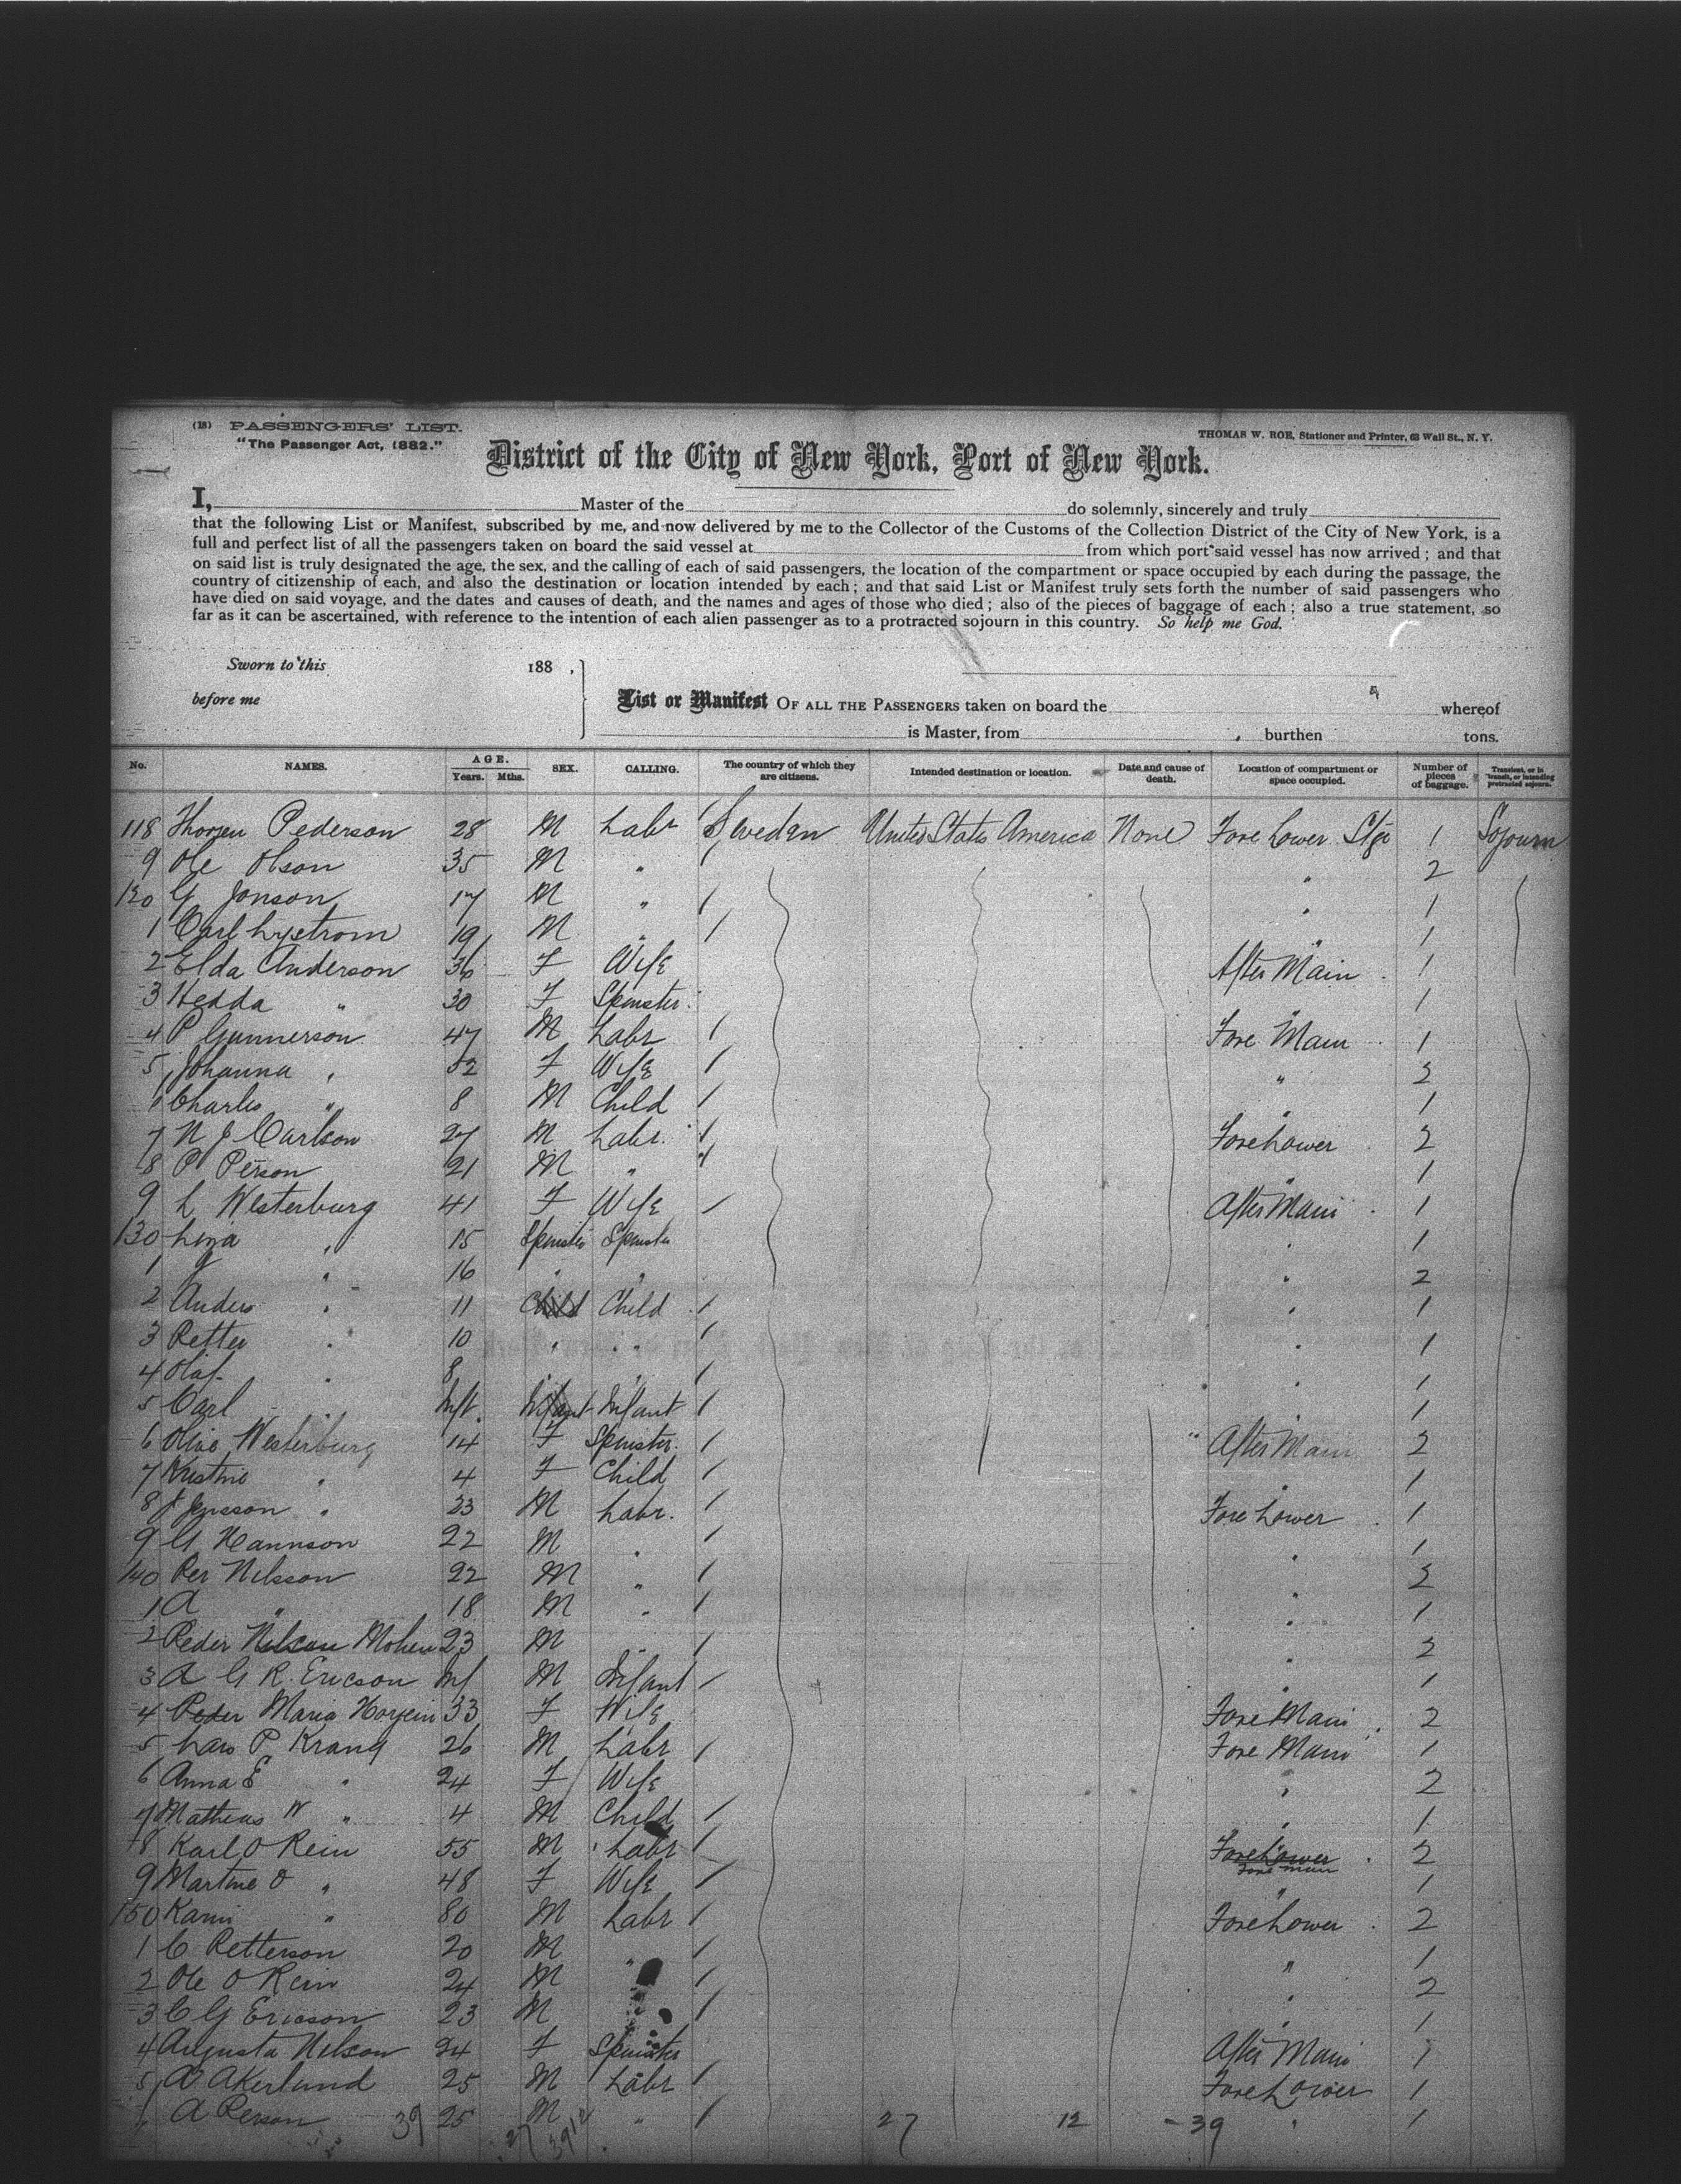 (18) PASSENGERS' LIST.
"The Passenger Act, 1882."
THOMAS W. ROE, Stationer and Printer, 63 Wall St., N. Y.
District of the City of New York, Port of New York.
I, Master of the do solemnly, sincerely and truly
that the following List or Manifest, subscribed by me, and now delivered by me to the Collector of the Customs of the Collection District of the City of New York, is a
full and perfect list of all the passengers taken on board the said vessel at from which port said vessel has now arrived; and that
on said list is truly designated the age, the sex, and the calling of each of said passengers, the location of the compartment or space occupied by each during the passage, the
country of citizenship of each, and also the destination or location intended by each; and that said List or Manifest truly sets forth the number of said passengers who
have died on said voyage, and the dates and causes of death, and the names and ages of those who died; also of the pieces of baggage of each; also a true statement, so
far as it can be ascertained, with reference to the intention of each alien passenger as to a protracted sojourn in this country. So help me God.
Sworn to this 188 ,
before me
List or Manifest OF ALL THE PASSENGERS taken on board the whereof
is Master, from , burthen tons.
No. NAMES. AGE. Years. Mths. SEX. CALLING. The country of which they are citizens. Intended destination or location. Date and cause of death. Location of compartment or space occupied. Number of pieces of baggage. Transient, or in transit, or intending protracted sojourn.
118 Pederson 28 M Labr Sweden United States America None Fore Lower Stge 1 Sojourn
9 Ole Olson 35 M " " 2
120 G Jonson 17 M " " 1
1 Carl Lystrom 19 M " " 1
2 Elda Anderson 36 F Wife After Main 1
3 Hedda " 30 F Spinster " 1
4 P Gunnerson 47 M Labr Fore Main 1
5 Johanna " 52 F Wife " 2
6 Charles " 8 M Child " 1
7 N J Carlson 27 M Labr. Fore Lower 2
8 P Person 21 M " " 1
9 L Westerburg 41 F Wife After Main 1
130 Lina " 15 Spinster Spinster " 1
1 G " 16 " " " 2
2 Anders " 11 Child Child " 1
3 Petter " 10 " " " 1
4 Olaf " 8 " " " 1
5 Carl " Inft. Infant Infant " 1
6 Olive Westerburg 14 F Spinster After Main 2
7 Kristine " 4 F Child " 1
8 J Jensson " 23 M Labr. Fore Lower 1
9 G Hannson 22 M " " 1
140 Per Nilsson 22 M " " 2
1 A " 18 M " " 1
2 Peder Nilson Mohen 23 M " " 2
3 A G R. Ericson Inf M Infant " 1
4 Peder Maria 33 F Wife Fore Main 2
5 Lars P Krang 26 M Labr Fore Main 1
6 Anna E " 24 F Wife " 2
7 Mathias W " 4 M Child " 1
8 Karl O Rein 55 M Labr Fore Lower Fore Main 2
9 Martine O " 48 F Wife " 1
150 Karm " 80 M Labr Fore Lower 2
1 C Petterson 20 M " " 1
2 Ole O Rein 24 M " " 2
3 C G Ericson 23 M " " 1
4 Augusta Nelson 24 F Spinster After Main 1
5 A Akerlund 25 M Labr Fore Lower 1
A Person 39 25 M " 27 12 - 39 " 1
27 39/12